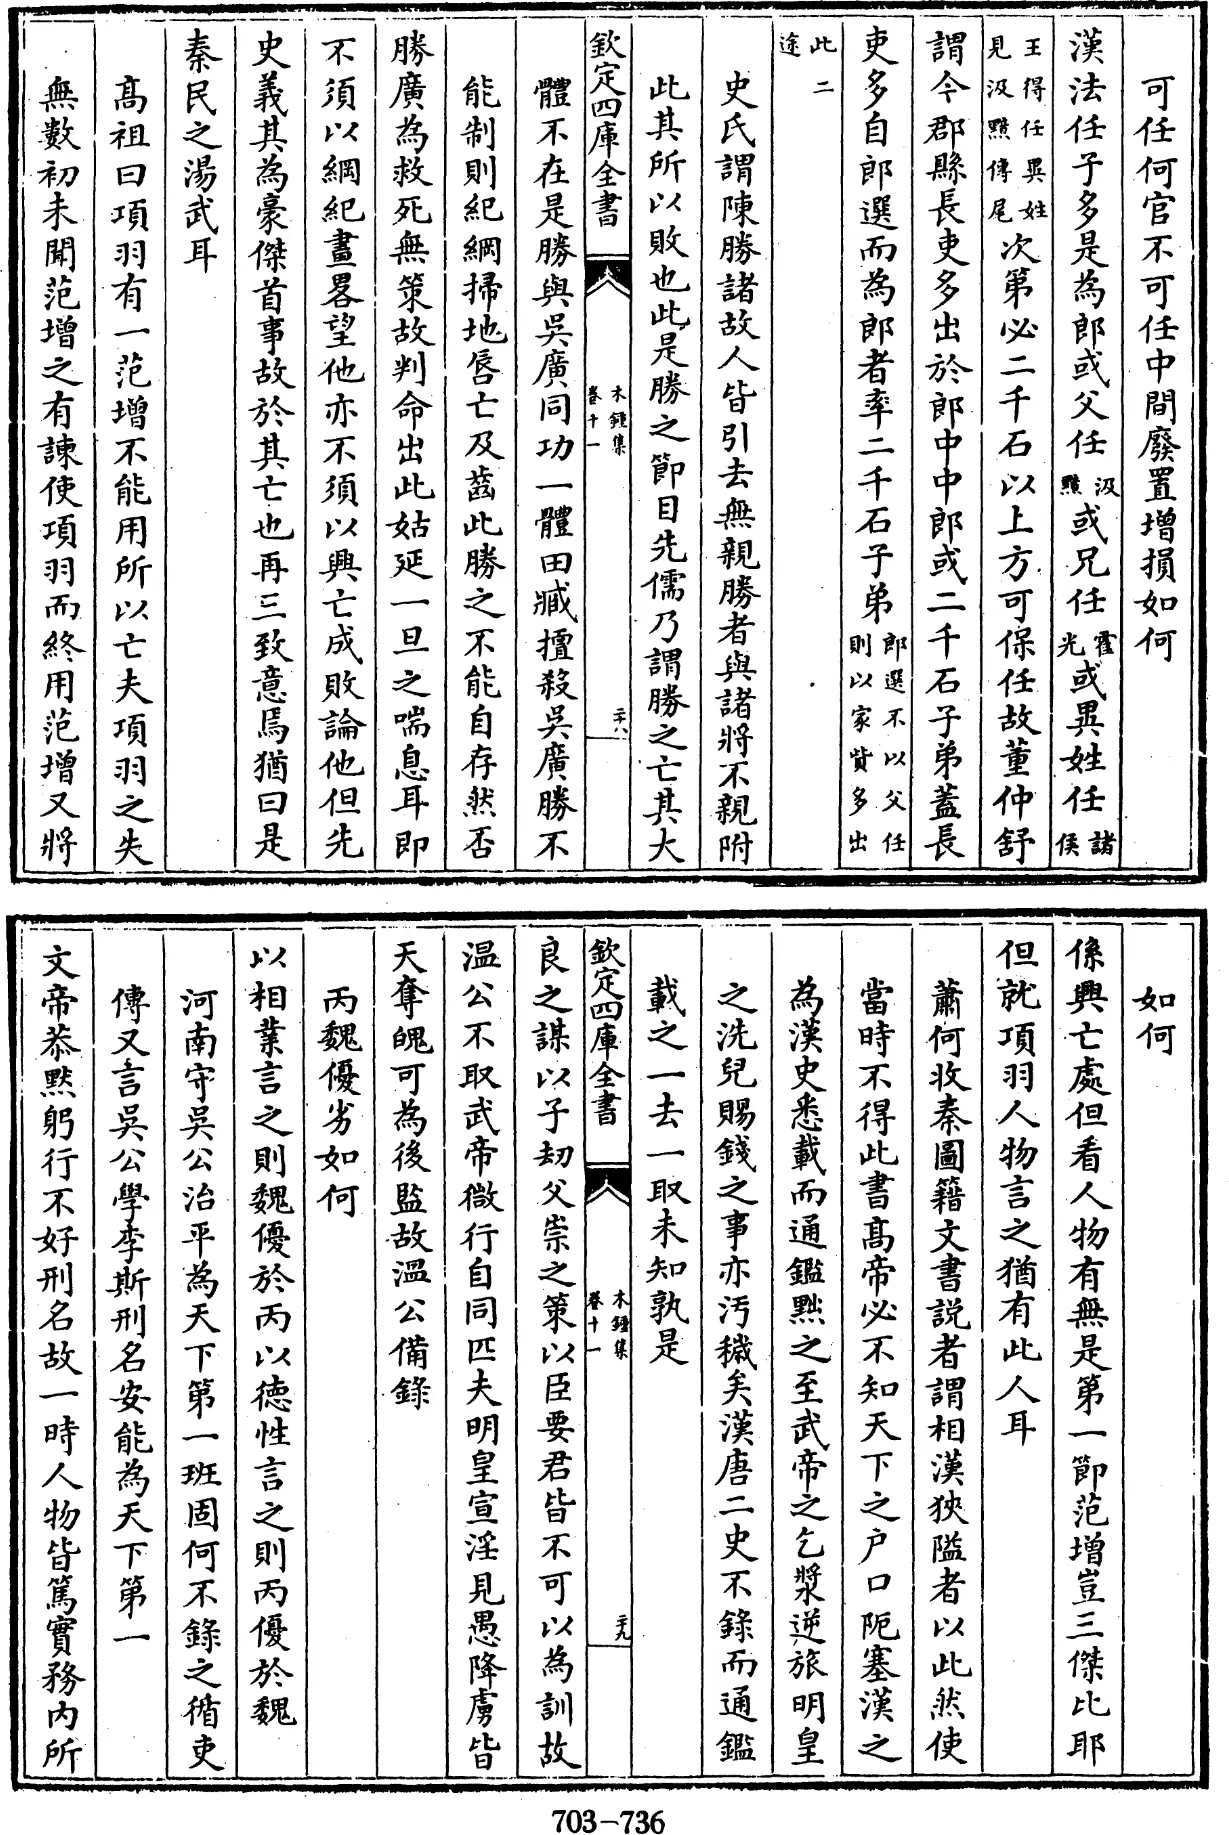 可任何官不可任中間廢置增損如何
漢法任子多是為郎或父任汲黯或兄任霍光或異姓任諸侯
王得任異姓見汲黯傳尾次第必二千石以上方可保任故董仲舒
謂今郡縣長吏多出於郎中中郎或二千石子弟蓋長
吏多自郎選而為郎者率二千石子弟郎選不以父任則以家貲多出
此二途
史氏謂陳勝諸故人皆引去無親勝者與諸將不親附
此其所以敗也此是勝之節目先儒乃謂勝之亡其大
欽定四庫全書 木鍾集卷十一 二十八
體不在是勝與吳廣同功一體田臧擅殺吳廣勝不
能制則紀綱掃地唇亡及齒此勝之不能自存然否
勝廣為救死無策故判命出此姑延一旦之喘息耳即
不須以綱紀畫畧望他亦不須以興亡成敗論他但先
史義其為豪傑首事故於其亡也再三致意焉猶曰是
秦民之湯武耳
高祖曰項羽有一范增不能用所以亡夫項羽之失
無數初未聞范增之有諫使項羽而終用范增又將
如何
係興亡處但看人物有無是第一節范增豈三傑比耶
但就項羽人物言之猶有此人耳
蕭何收秦圖籍文書説者謂相漢狹隘者以此然使
當時不得此書高帝必不知天下之户口阨塞漢之
為漢史悉載而通鑑黜之至武帝之乞漿逆旅明皇
之洗兒賜錢之事亦污穢矣漢唐二史不錄而通鑑
載之一去一取未知孰是
欽定四庫全書 木鍾集卷十一 二十九
良之謀以子刼父崇之策以臣要君皆不可以為訓故
温公不取武帝微行自同匹夫明皇宣淫見愚降虜皆
天奪魄可為後監故温公備錄
丙魏優劣如何
以相業言之則魏優於丙以德性言之則丙優於魏
河南守吳公治平為天下第一班固何不錄之循吏
傳又言吳公學李斯刑名安能為天下第一
文帝恭默躬行不好刑名故一時人物皆篤實務内所
703-736